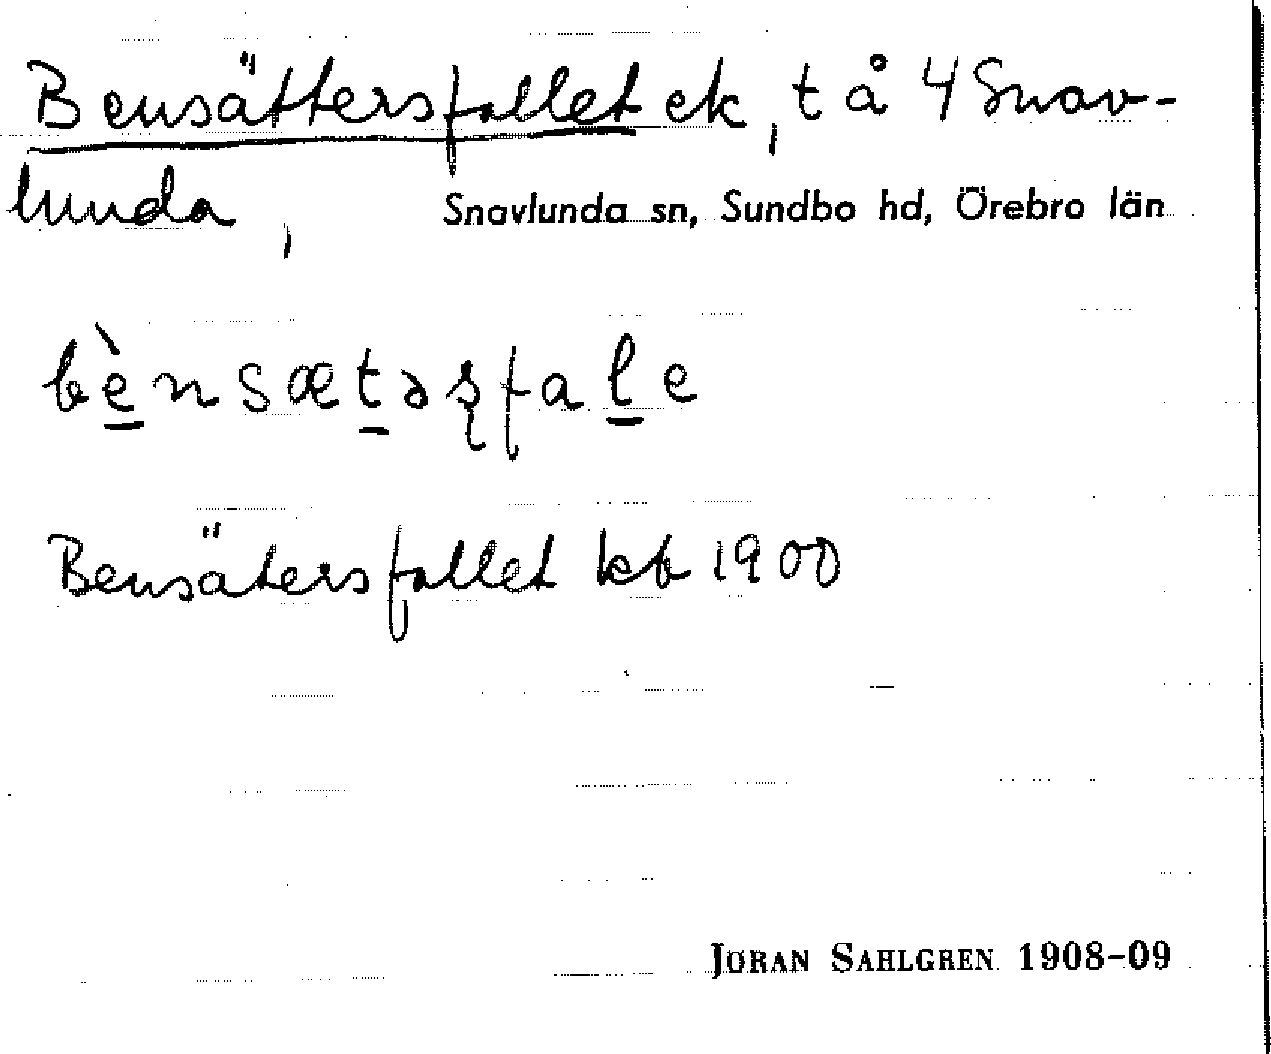 Bensättersfallet ek, t å 4 Snav-
lunda, Snavlunda sn, Sundbo hd, Örebro län
bènsætəʂfale
Bensätersfallet kb 1900
JÖRAN SAHLGREN 1908-09